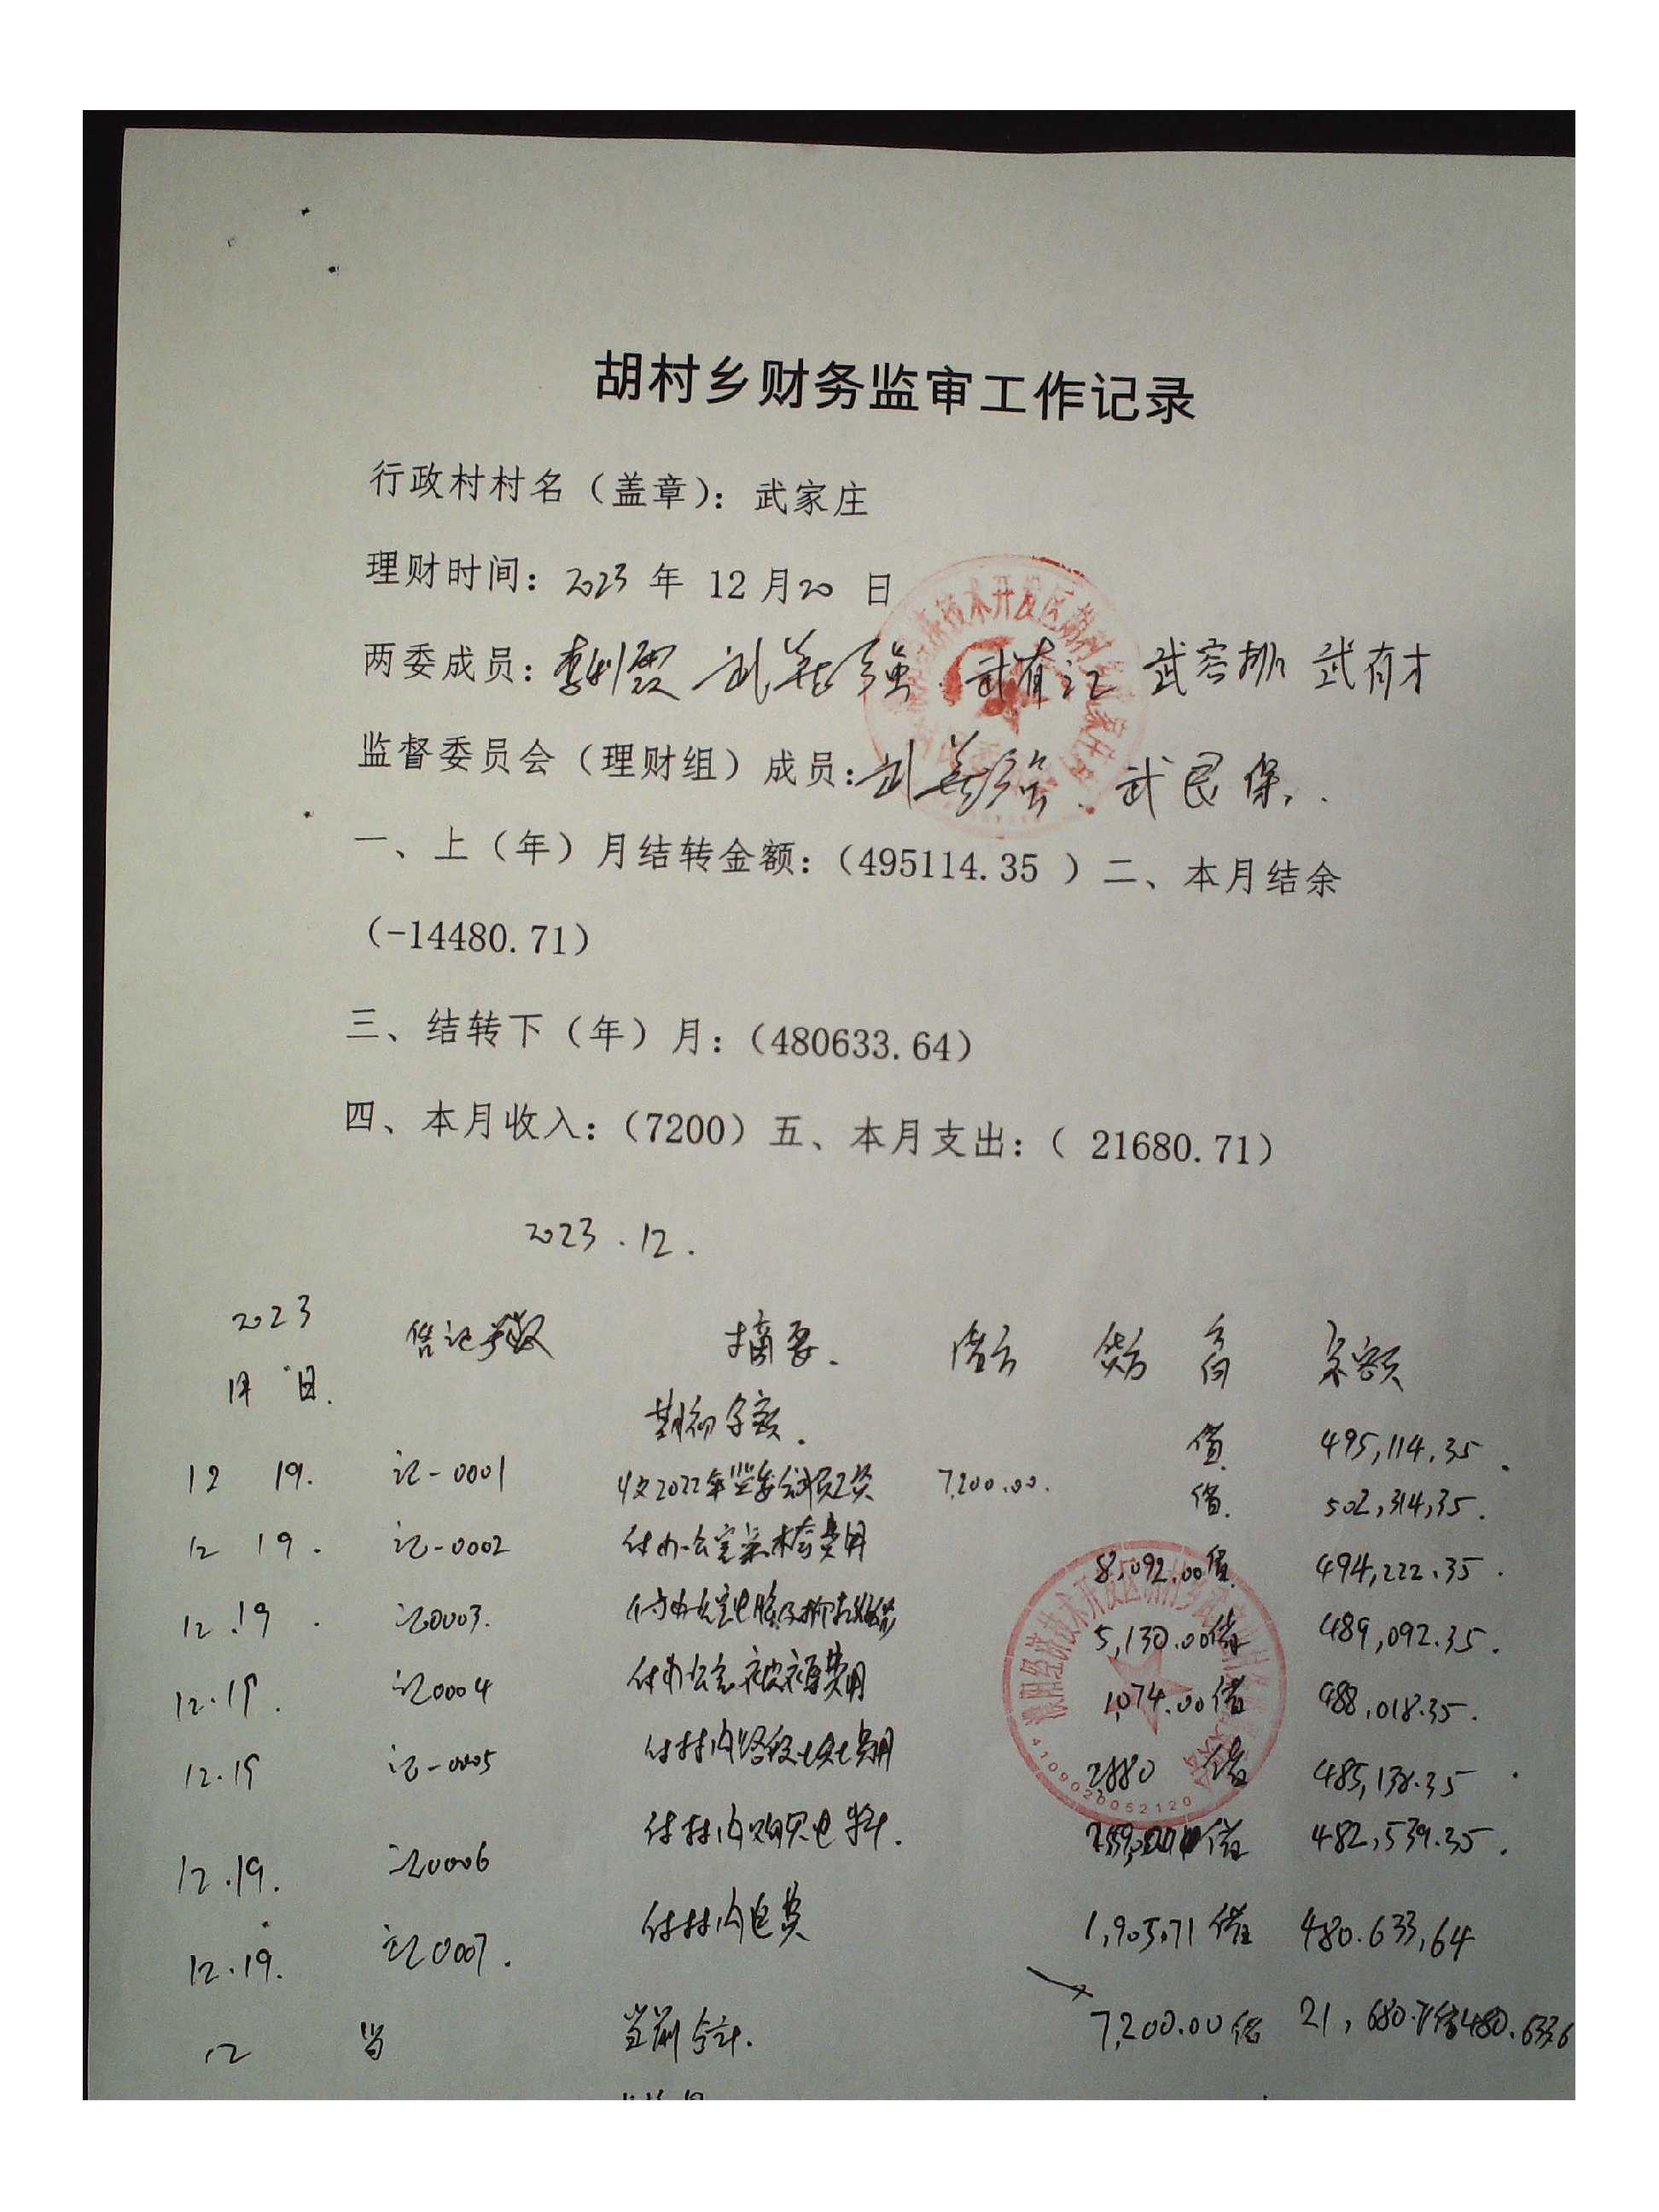 胡村乡财务监审工作记录
行政村村名（盖章）：武家庄
理财时间：2023 年 12月20 日
两委成员： 武有江 武有才
监督委员会（理财组）成员： 武民保.
一、上（年）月结转金额：（495114.35 ）二、本月结余
（-14480.71）
三、结转下（年）月：（480633.64）
四、本月收入：（7200）五、本月支出：（ 21680.71）
2023.12.
2023
月 日. 摘要. 借方 贷方 方向 余额
期初余额. 借 495,114.35
12 19. 记-0001 收2022年监委会成员工资 7,200.00. 借 502,314.35.
12 19. 记-0002 付办公室 费用 8,092.00 借 494,222.35.
12.19. 记0003. 付办公室电脑及 5,130.00 借 489,092.35.
12.19. 记0004 付办公室被褥费用 1,074.00 借 488,018.35.
12.19 记-0005 付村内 费用 2880 借 485,138.35
12.19. 记0006 付村内购买电料. 借 482,539.35.
12.19. 记0007. 付村内电费 1,905.71 借 480.633,64
12 当 当前合计. 7,200.00 借 21,680.71 借 480.633.6
经济技术开发区胡村乡
4109020052120